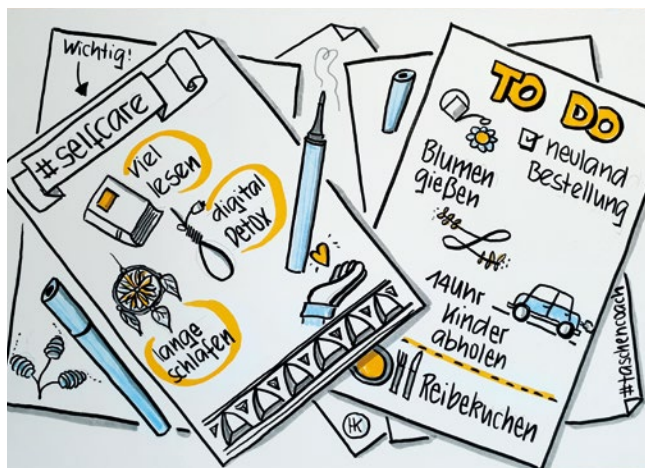 Wichtig!
#selfcare
viel
lesen
digital
Detox
lange
schlafen
TO DO
Blumen
gießen
neuland
Bestellung
14 Uhr
Kinder
abholen
Reibekuchen
#taschencoach
HK